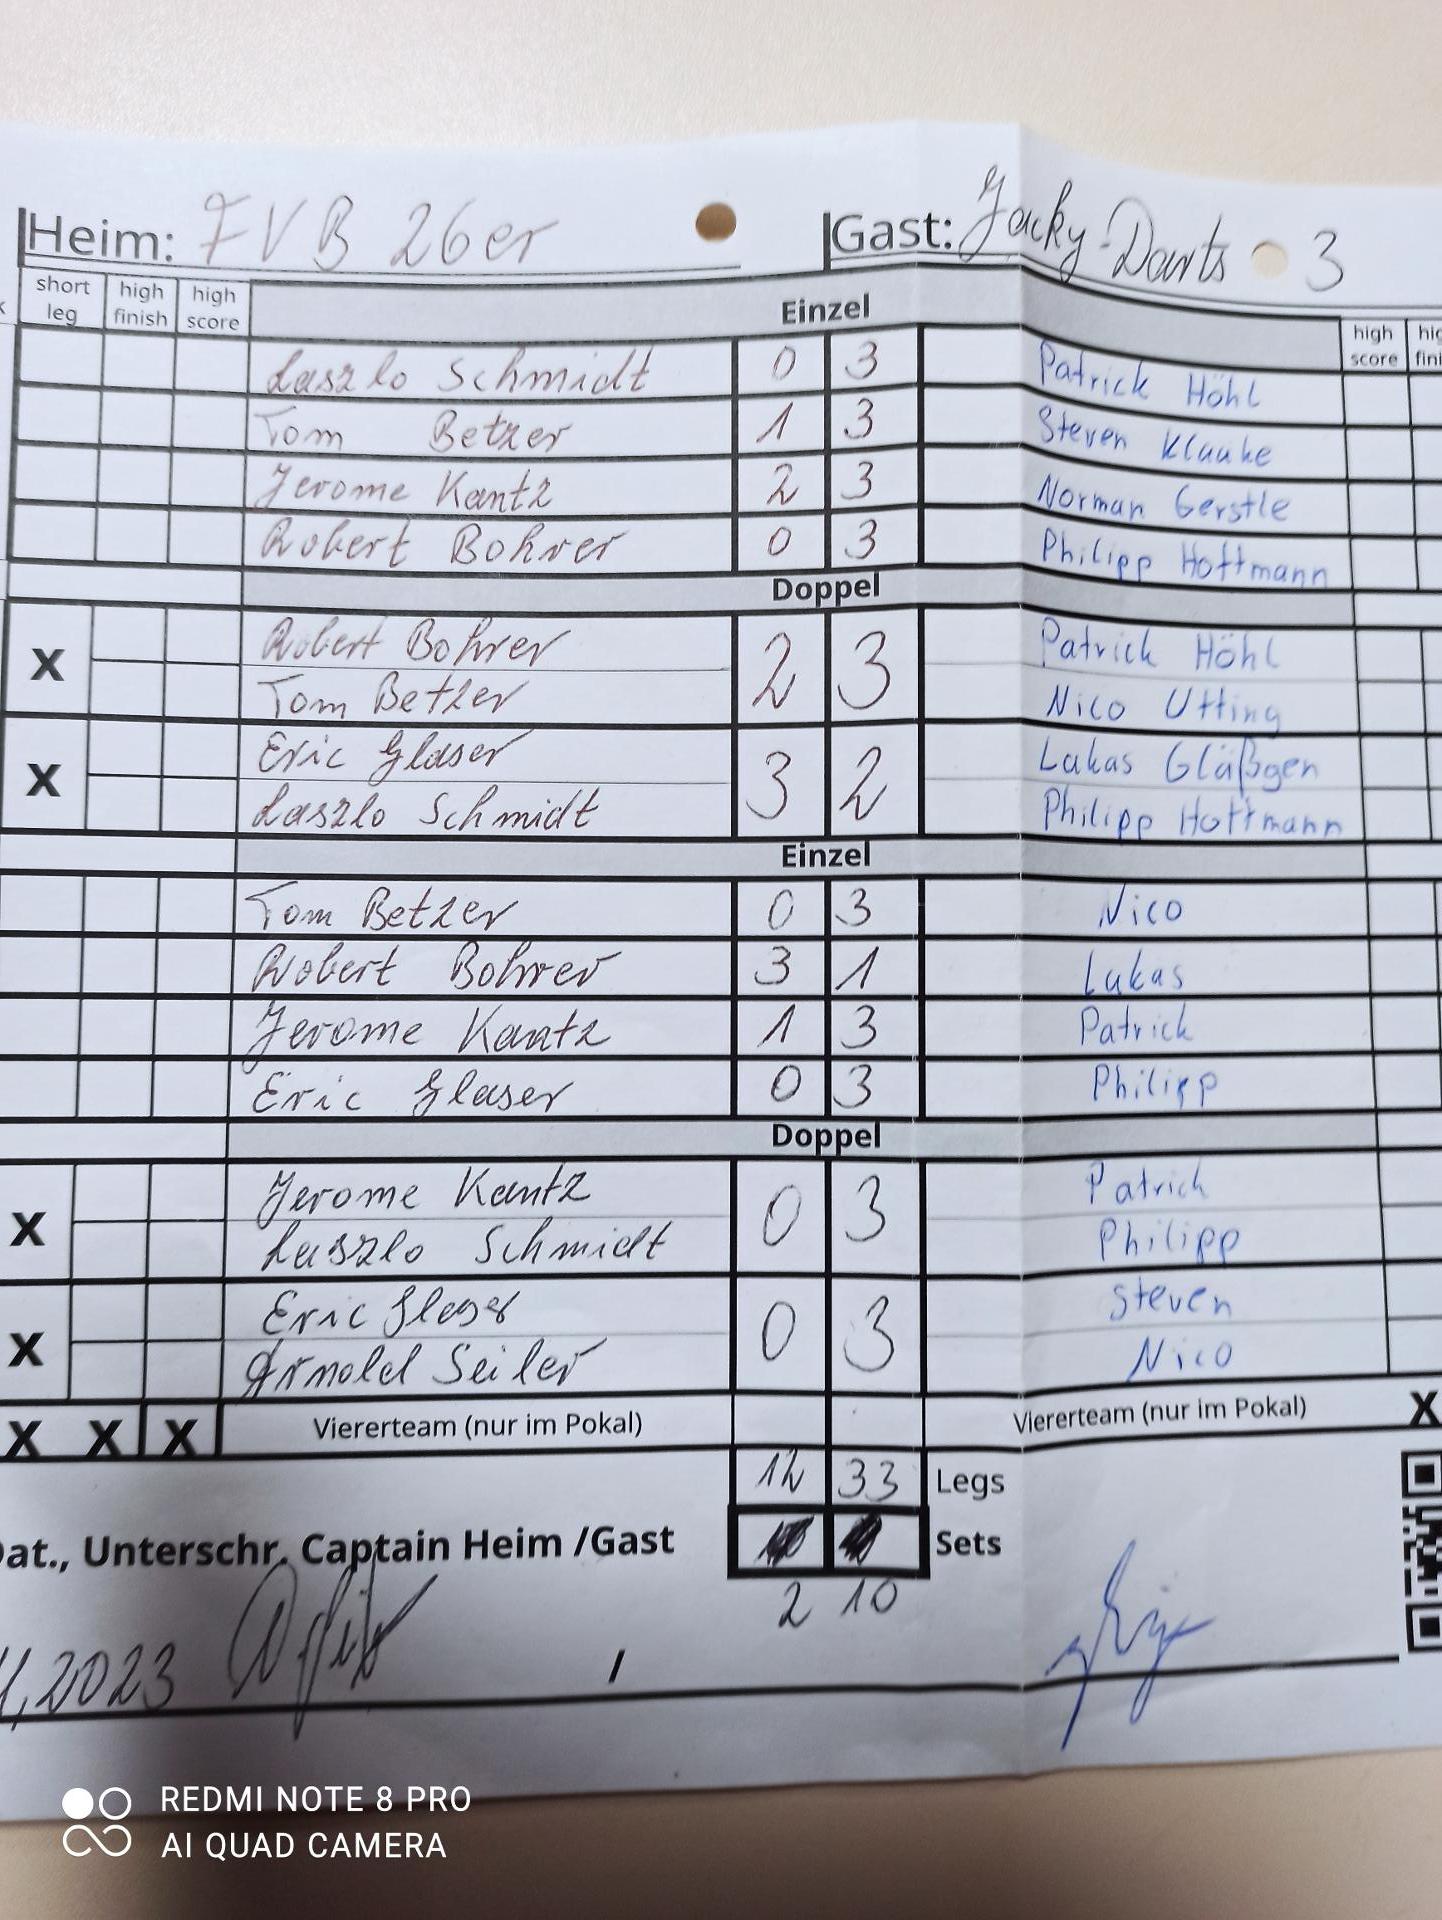 Heim: FVB 26er Gast: Jacky-Darts 3
short leg high finish high score Einzel high score
Laszlo Schmidt 0 3 Patrick Höhl
Tom Betzer 1 3 Steven Klauke
Jerome Kantz 2 3 Norman Gerstle
Robert Bohrer 0 3 Philipp Hoffmann
Doppel
X Robert Bohrer 2 3 Patrick Höhl
Tom Betzer Nico Utting
X Eric Glaser 3 2 Lukas Gläßgen
Laszlo Schmidt Philipp Hoffmann
Einzel
Tom Betzer 0 3 Nico
Robert Bohrer 3 1 Lukas
Jerome Kantz 1 3 Patrick
Eric Glaser 0 3 Philipp
Doppel
X Jerome Kantz 0 3 Patrick
Laszlo Schmidt Philipp
X Eric Glaser 0 3 Steven
Arnold Seiler Nico
X X X Viererteam (nur im Pokal) Viererteam (nur im Pokal) X
12 33 Legs
Dat., Unterschr. Captain Heim /Gast Sets
2 10
2023 /
REDMI NOTE 8 PRO
AI QUAD CAMERA